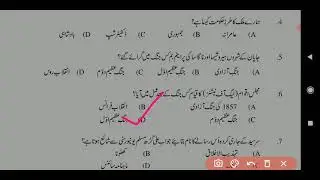 4. ہمارے ملک کا طرز حکومت کیسا ہے؟
A) آمرانہ B) جمہوری C) ڈکٹیٹرشپ D) بادشاہی
5. جاپان کے شہروں ہیروشیما اور ناگاساکی پر ایٹم بم کس جنگ میں گرائے گئے؟
A) جنگ آزادی B) جنگ عظیم اوّل C) جنگ عظیم دوّم D) انقلاب روس
6. مجلس اقوام (لیگ آف نیشنز) کا قیام کس جنگ کے میں آیا؟
A) 1857 کی جنگ آزادی B) انقلاب فرانس
C) جنگ عظیم دوّم D) جنگ عظیم اوّل
7. سرسید کے جاری کردہ اس رسالے کا نام بتایئے جو اب علی گڑھ مسلم یونیورسٹی سے شائع ہوتا ہے؟
A) تہذیب الاخلاق B) کھلونا